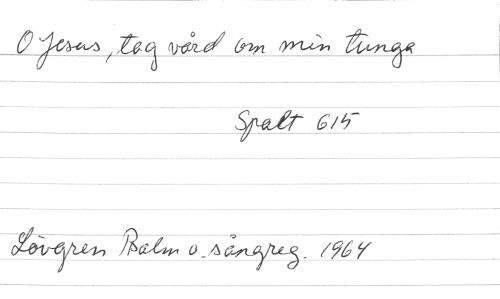 O Jesus, tag vård om min tunga
Spalt 615
Lövgren Psalm o. sångreg. 1964